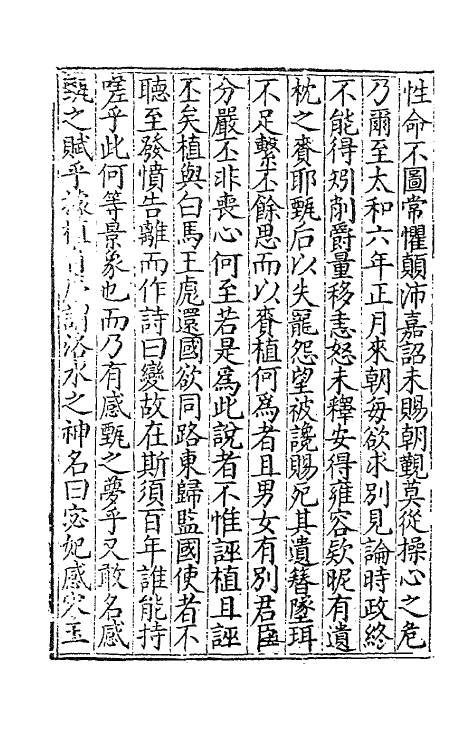 性命不圖常懼顛沛嘉詔未賜朝覲莫從操心之危
乃爾至太和六年正月來朝每欲求別見論時政終
不能得矧削爵量移恚怒未釋安得雍容欵昵有遺
枕之賚耶甄后以失寵怨望被讒賜死其遺簪墜珥
不足繫丕餘思而以賚植何爲者且男女有別君臣
分嚴丕非喪心何至若是爲此說者不惟誣植且誣
丕矣植與白馬王彪還國欲同路東歸監國使者不
聽至發憤告離而作詩曰變故在斯須百年誰能持
嗟乎此何等景象也而乃有感甄之夢乎又敢名感
甄之賦乎 植 謂洛水之神名曰宓妃感宋玉